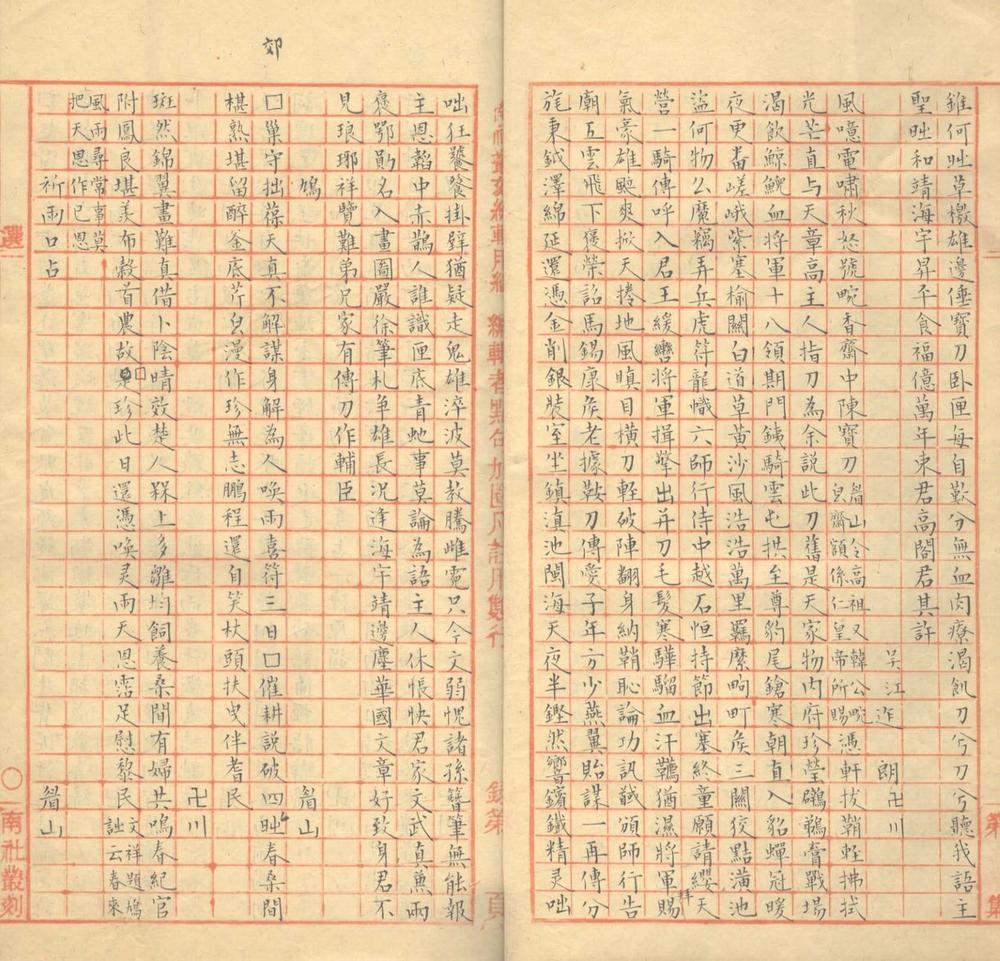 錐何時草檄雄邊倕寶刀卧匣每自歎兮無血肉療渴飢刀兮刀兮聽我語主
聖時和靖海宇昇平食福億萬年東君高閣君其許
吳江迮朗卍川
風噫雷嘯秋怒號畹香齋中陳寶刀
眉山令高祖又韓公畹
皀齋額係仁皇帝所賜
憑軒拔鞘輕拂拭
光芒直与天章高主人指刀為余説此刀舊是天家物内府珍瑩鸊鵜膏戰場
渴飲鯨鯢血將軍十八領期門銕騎雲屯拱至尊豹尾鎗寒朝直入貂蟬冠暖
夜更番嵯峨紫塞榆關白道草黄沙風浩浩萬里羈縻畇町侯三關狡點潢池
盜何物么魔竊弄兵虎符龍幟六師行侍中越石恒持節出塞終童願請纓天
營一騎傳呼入君王緩轡將軍揖擎出并刀毛髮寒驊騮血汗韉猶濕將軍賜
拜
氣豪雄颰爽掀天捲地風瞋目橫刀輕破陣翻身納鞘恥論功訊馘頒師行告
廟五雲飛下褒榮詔馬錫康侯老據鞍刀傳愛子年方少燕翼貽謀一再傳分
旄秉鉞澤綿延還憑金削銀裝室坐鎮滇池閩海天夜半鏗然響鑌鐵精灵咄
咄狂饕餮掛壁猶疑走鬼雄淬波莫教騰雌霓只今文弱愧諸孫簪筆無能報
主恩韜中赤鵲人誰識匣底青虵事莫論為語主人休悵怏君家文武真兼兩
褒鄂勛名入畫圖嚴徐筆札牟雄長況逢海宇靖邊塵華國文章好致身君不
見琅琊祥覽難弟兄家有傳刀作輔臣
鳩
眉山
口巢守拙葆天真不解謀身解為人喚雨喜符三日口催耕説破四時春桑間
椹熟堪留醉釜底芹皀漫作珍無志鵬程還自笑杖頭扶曳伴耆民
卍川
斑然錦翼畫難真借卜陰晴效楚人槑上多雛均飼養桑間有婦共鳴春紀官
附鳳良堪美布穀首農故口珍此日還憑喚灵雨天恩霑足慰黎民
文祥題鳩
詘云春來
風雨尋常事莫
把天恩作已恩
祈雨口占
眉山
郊
選
南社叢刻